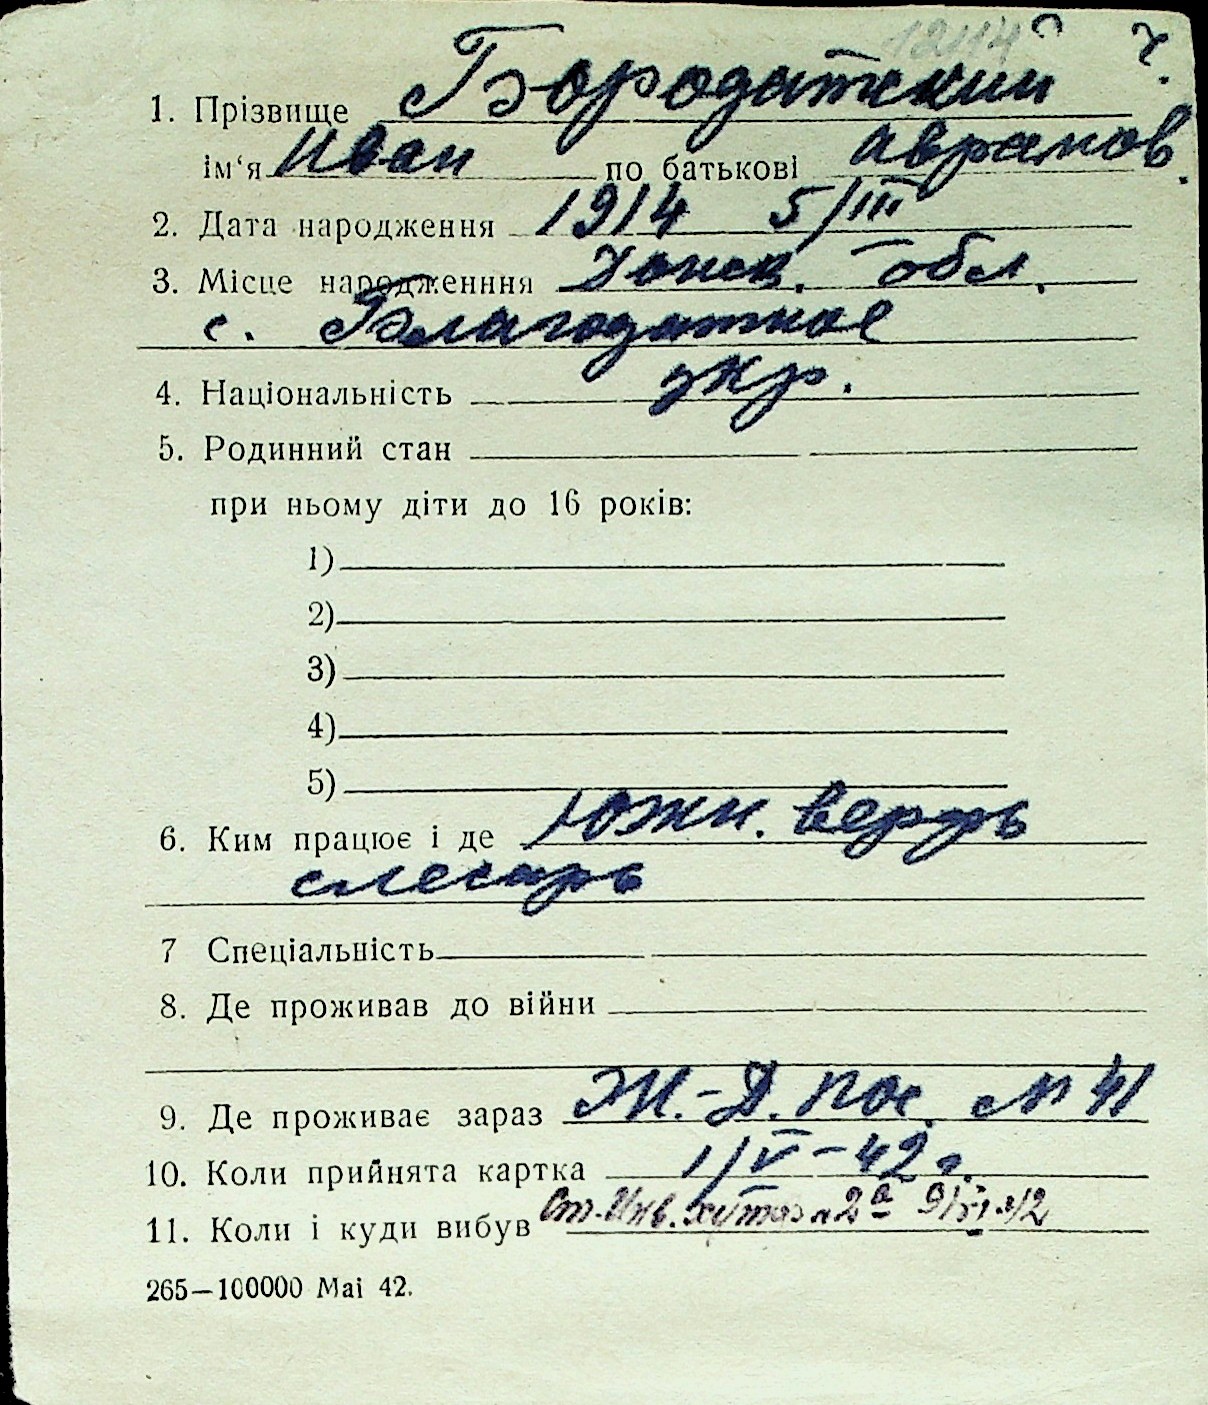 1214 ч.
1. Прізвище Бородатский
ім‘я Иван по батькові Аврамов.
2. Дата народження 1914 5/III
3. Місце народженння обл.
с. Благодатное
4. Національність укр.
5. Родинний стан
при ньому діти до 16 років:
1)
2)
3)
4)
5)
6. Ким працює і де Южн. верфь
слесарь
7 Спеціальність
8. Де проживав до війни
9. Де проживає зараз Ж.-Д. пос. № 41
10. Коли прийнята картка 1/V-42 г.
11. Коли і куди вибув Ст. Инв. хутор 2а
265—100000 Маі 42.